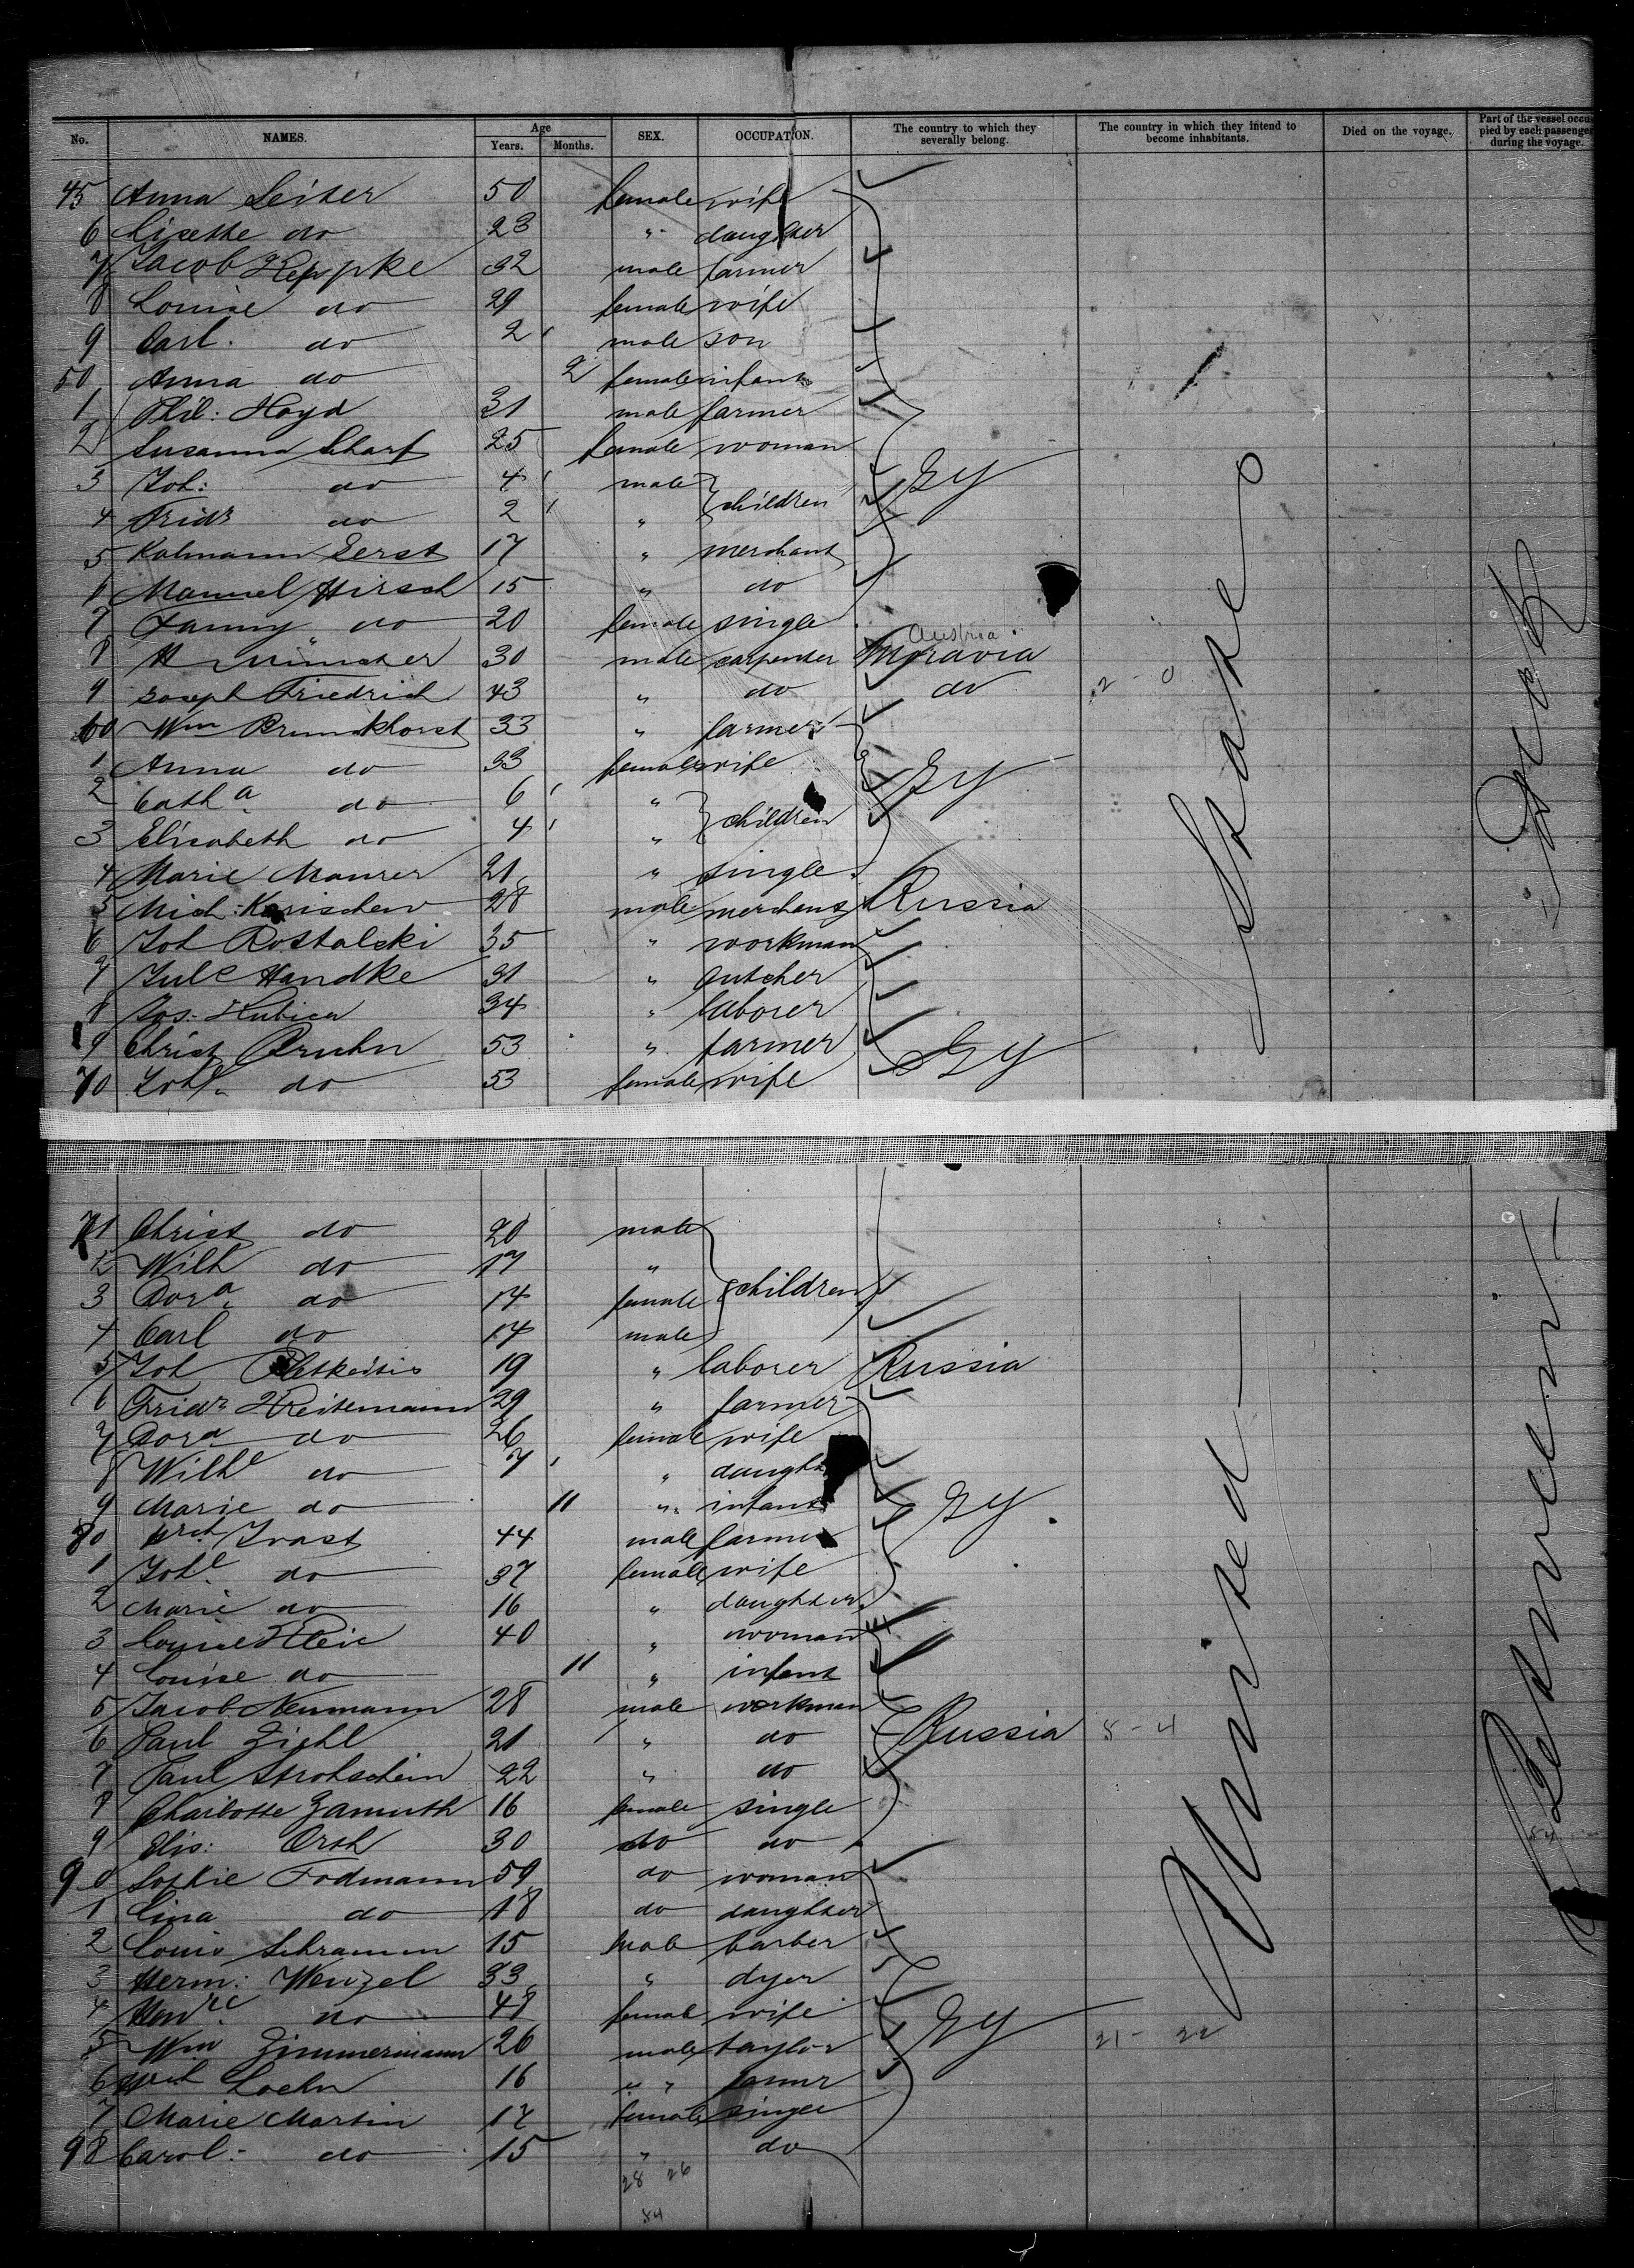 No. NAMES. Age Years. Months. SEX. OCCUPATION. The country to which they severally belong. The country in which they intend to become inhabitants. Died on the voyage. Part of the vessel occupied by each passenger during the voyage.
45 Anna Leiter 50 female wife
6 Lisette do 23 " daughter
7 Jacob Heppke 32 male farmer
8 Louise do 29 female wife
9 Carl. do 2 male son
50 Anna do 2 female infant
1 Phil: Hoyd 31 male farmer
2 Susanna Scharf 25 female woman
3 Joh: do 4 male children Gy
4 Fridr do 2 "
5 Kalmann Gerst 17 " merchant
6 Manuel Hirsch 15 " do
7 Fanny do 20 female single
8 30 male carpenter Moravia Austria
9 Joseph Friedrich 43 " do do 2 - 0
60 Wm Brunkhorst 33 " farmer
1 Anna do 33 female wife
2 Catha do 6 " children Gy
3 Elisabeth do 4 "
4 Marie Maurer 21 " single
5 Mich: 28 male merchant Russia
6 Joh Rostalski 35 " workman
7 Jule Handke 31 "
8 Jos: Kubica 34 " laborer
9 Christ Bruhn 53 " farmer Gy
70 do 53 female wife
71 Christ do 20 male
2 Wilh do 17 "
3 Dora do 14 female children
4 Carl do 14 male
5 Joh 19 " laborer Russia
6 Fridr 29 " farmer
7 Dora do 26 female wife
8 Wilhe do 7 "
9 Marie do 11 " infant Gy
80 44 male farmer
1 Johe do 37 female wife
2 Marie do 16 " daughter
3 Louise 40 " woman
4 Louise do 11 " infant
5 Jacob Neumann 28 male workman
6 Paul Ziehl 21 " do Russia 8 - 4
7 Paul Strohschein 22 " do
8 Charlotte Zamuth 16 female single
9 Elis: Orth 30 do do
90 Sophie Fodmann 59 do woman
1 Lina do 18 do daughter
2 Louis Schramm 15 male barber
3 Herm: Wenzel 33 " dyer
4 do 48 female wife Gy
5 Wm Zimmermann 26 male taylor 21 - 22
6 Loehr 16 " farmer
7 Marie Martin 17 female single
98 Carol: do 15 " do
28 26
54
United States
Betwen Deck